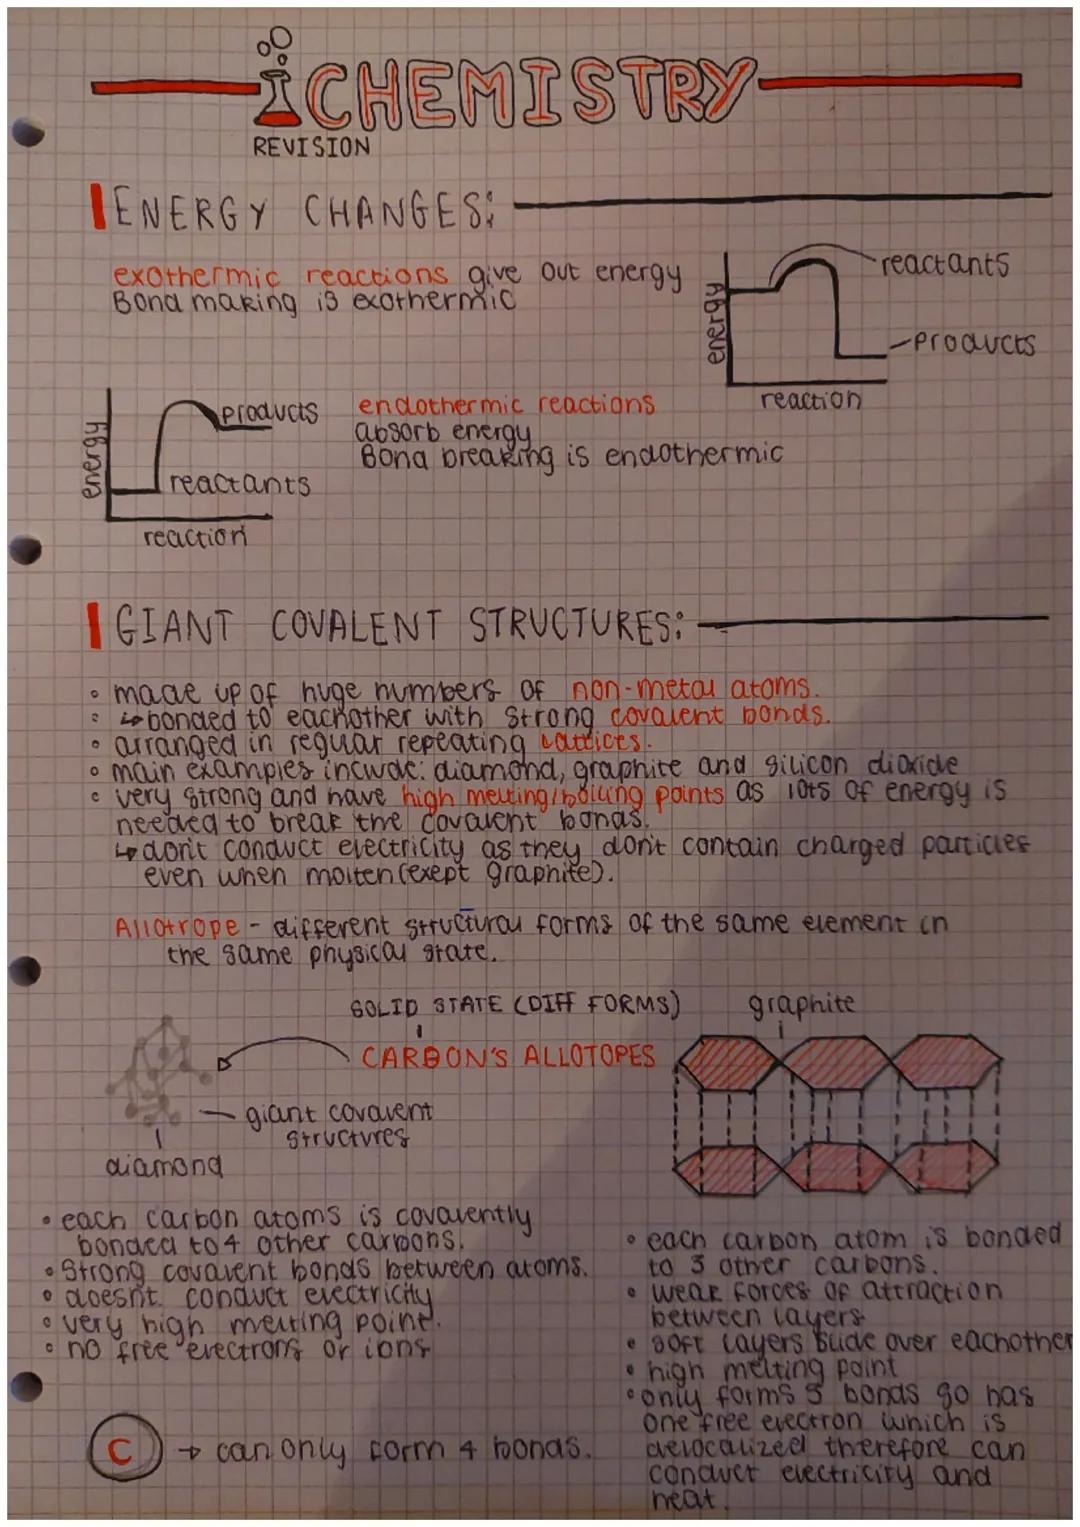 CHEMISTRY
REVISION
ENERGY CHANGES:
exothermic reactions give out energy
Bond making is exothermic
energy
reactants
products
reaction
energy
products
reactants
reaction
endothermic reactions
absorb energy
Bond breaking is endothermic
GIANT COVALENT STRUCTURES:
• made up of huge numbers of non-metal atoms.
• ↳ bonded to eachother with strong covalent bonds.
• arranged in regular repeating lattices.
• main examples include: diamond, graphite and silicon dioxide
• very strong and have high melting/boiling points as lots of energy is
needed to break the covalent bonds.
↳ don't conduct electricity as they don't contain charged particles
even when molten (exept graphite).
Allotrope - different structural forms of the same element in
the same physical state.
SOLID STATE (DIFF FORMS)
CARBON'S ALLOTOPES
graphite
giant covalent
structures
diamond
• each carbon atoms is covalently
bonded to 4 other carbons.
• Strong covalent bonds between atoms.
• doesn't conduct electricity
• very high melting point.
• no free electrons or ions
C → can only form 4 bonds.
• each carbon atom is bonded
to 3 other carbons.
• weak forces of attraction
between layers
• soft layers slide over eachother
• high melting point
• only forms 3 bonds so has
one free electron which is
delocalized therefore can
conduct electricity and
heat.